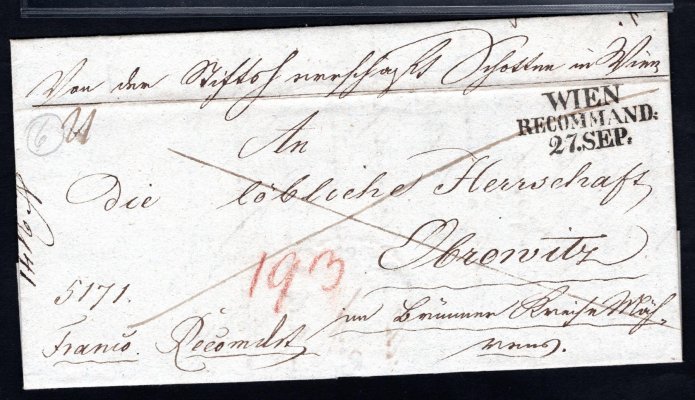 Von der Stiftsherrschaft Schotten in Wien
WIEN
RECOMMAND:
27.SEP.
6
An
Die löbliche Herrschaft
Obrowitz
193
5171.
im Brünner Kreise Mäh-
rens.
Franco. Recomdt